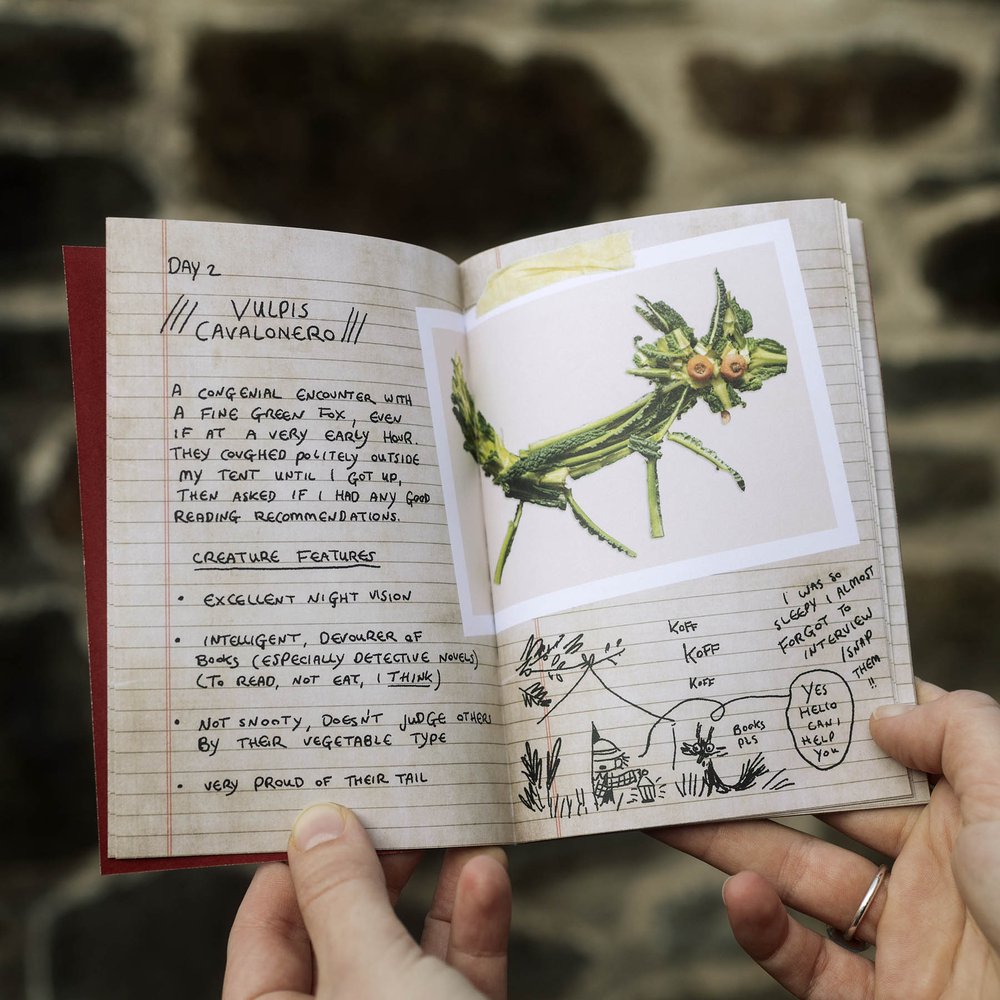 DAY 2
/// VULPIS
CAVALONERO ///
A CONGENIAL ENCOUNTER WITH
A FINE GREEN FOX, EVEN
IF AT A VERY EARLY HOUR.
THEY COUGHED POLITELY OUTSIDE
MY TENT UNTIL I GOT UP,
THEN ASKED IF I HAD ANY GOOD
READING RECOMMENDATIONS.
CREATURE FEATURES
• EXCELLENT NIGHT VISION
• INTELLIGENT, DEVOURER OF
BOOKS (ESPECIALLY DETECTIVE NOVELS)
(TO READ, NOT EAT, I THINK)
• NOT SNOOTY, DOESN'T JUDGE OTHERS
BY THEIR VEGETABLE TYPE
• VERY PROUD OF THEIR TAIL
I WAS SO
SLEEPY I ALMOST
FORGOT TO
INTERVIEW
/SNAP
THEM
!!
KOFF
KOFF
KOFF
BOOKS
PLS
YES
HELLO
CAN I
HELP
YOU